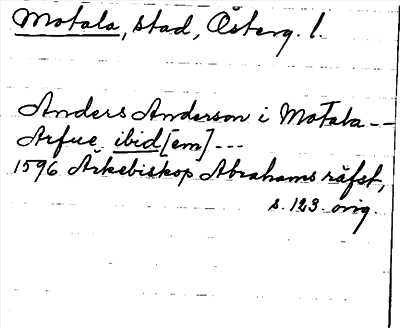 Motala, stad, Österg. l.
Anders Anderson i Motala --
Arfue ibid[em] ---
1596 Ärkebiskop Abrahams räfst,
s. 123 orig.